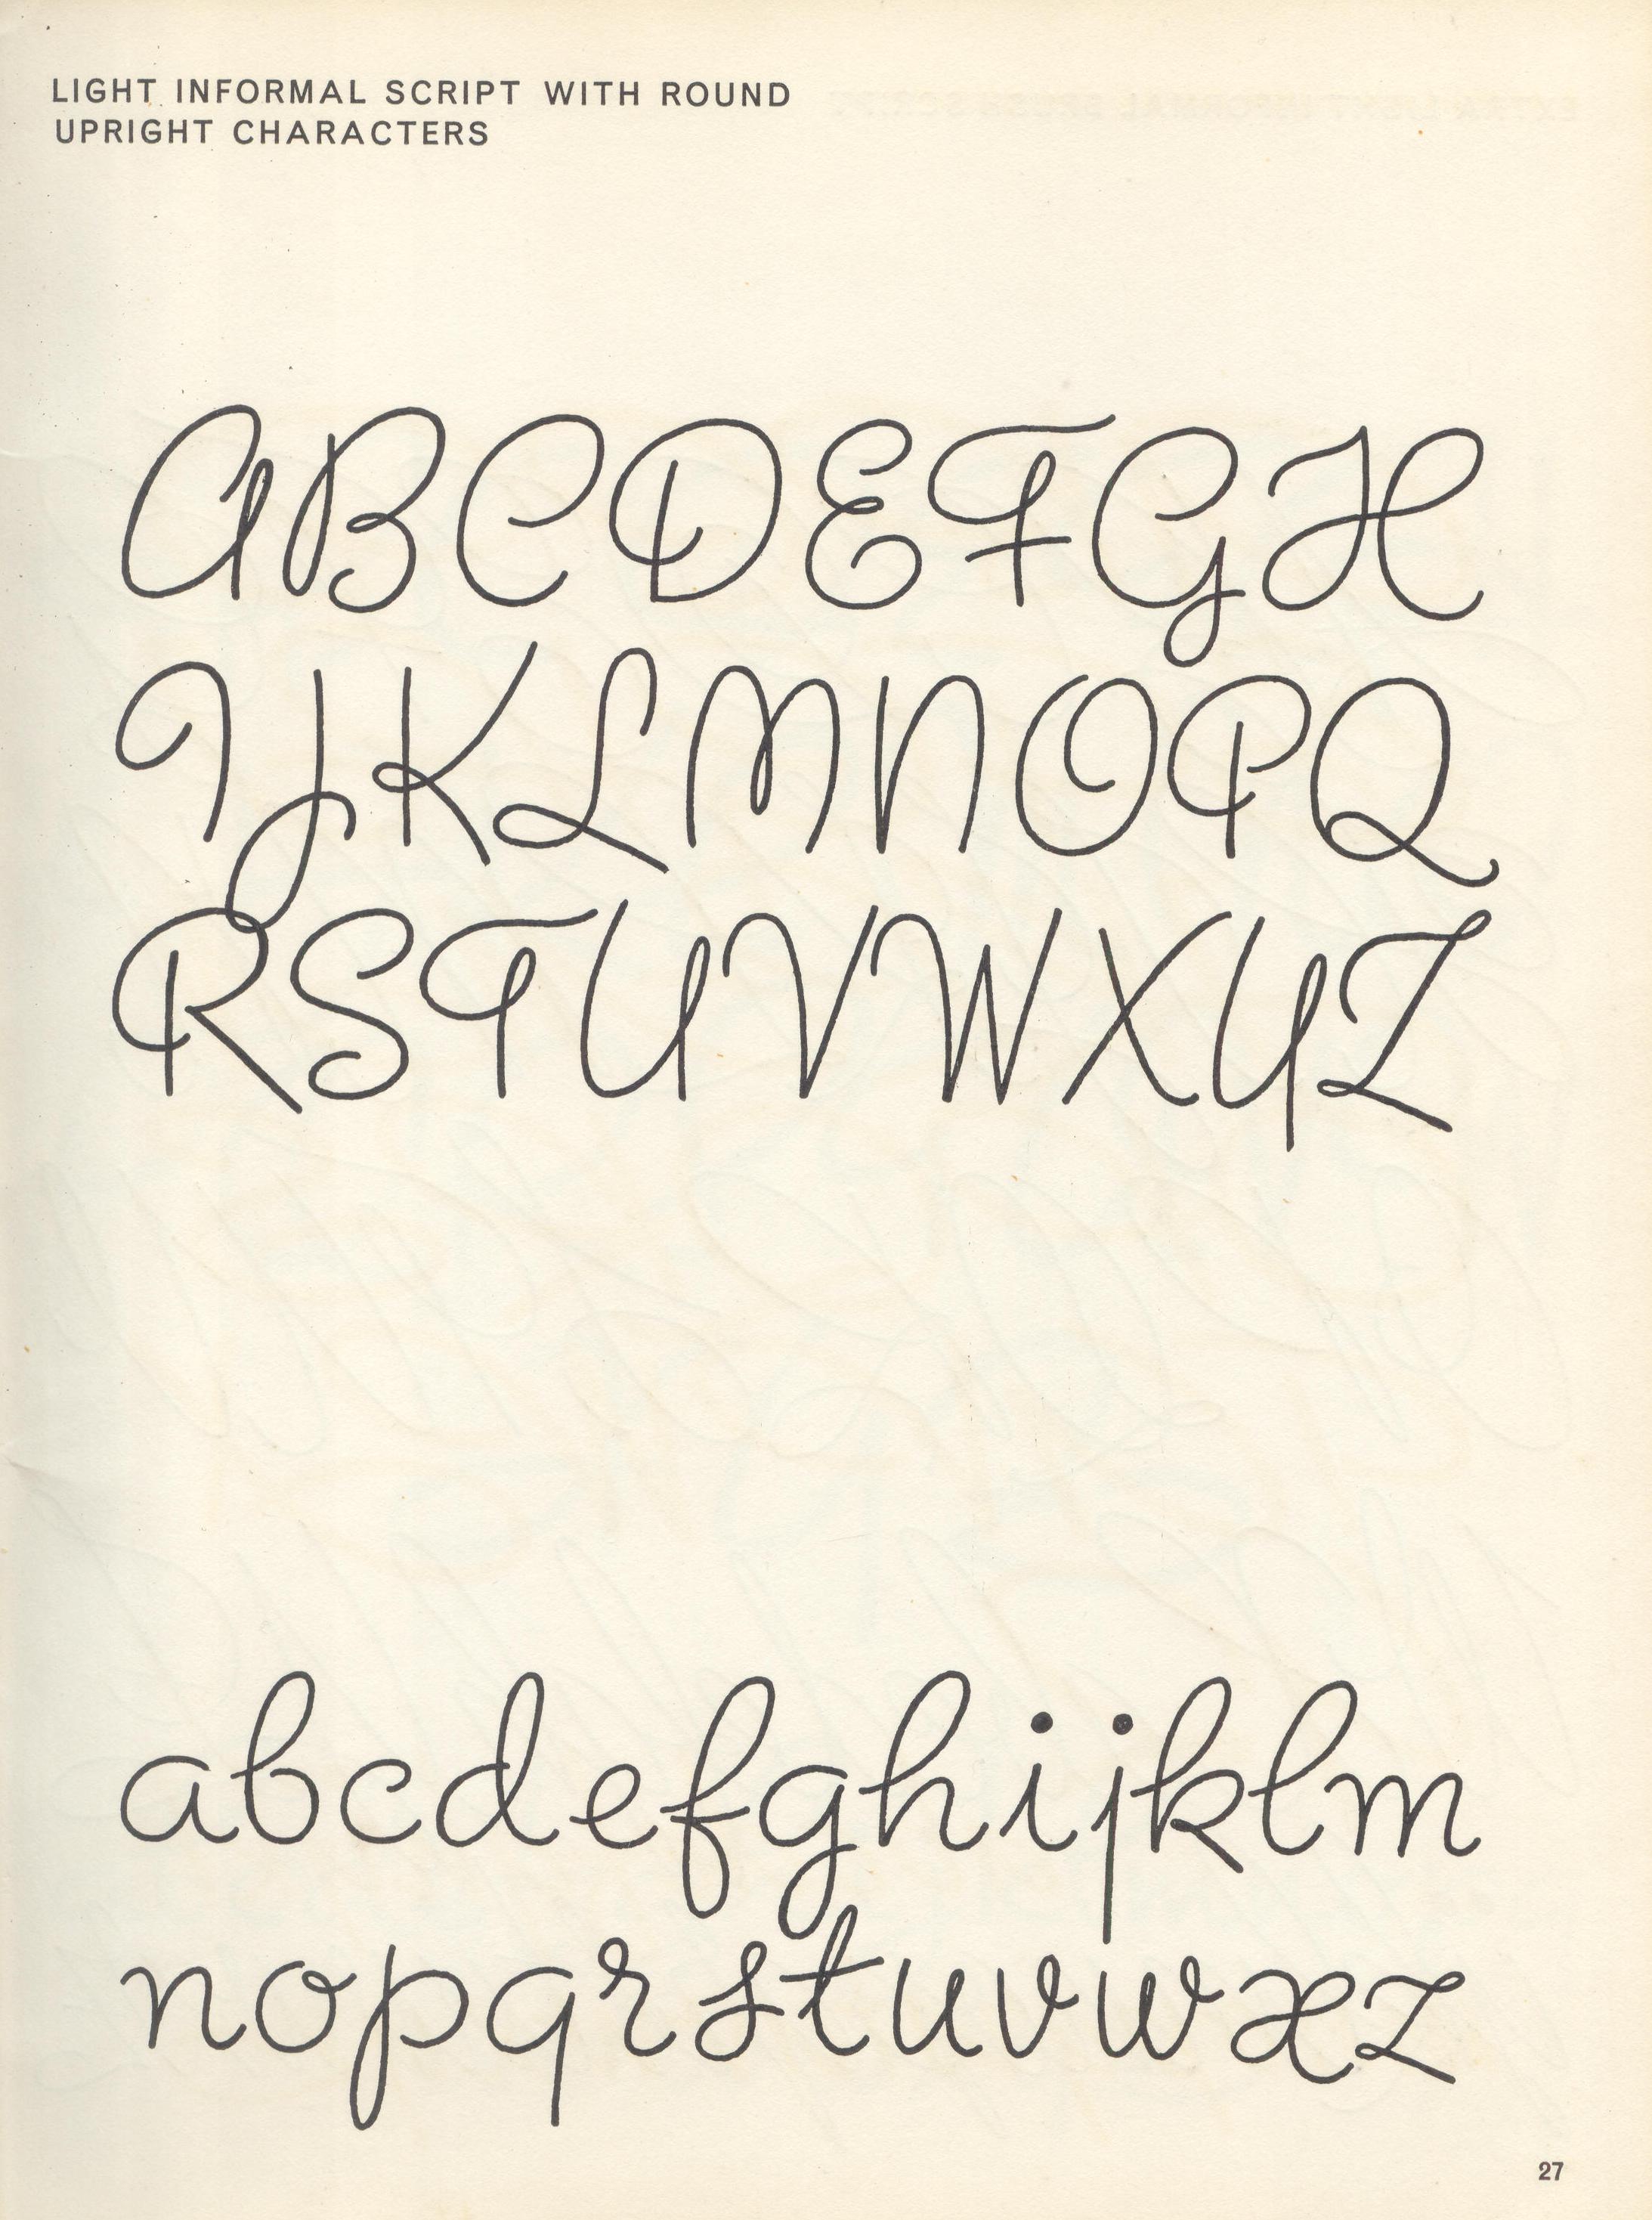 LIGHT INFORMAL SCRIPT WITH ROUND
UPRIGHT CHARACTERS
A B C D E F G H
I J K L M N O P Q
R S T U V W X Y Z
a b c d e f g h i j k l m
n o p q r s t u v w x z
27